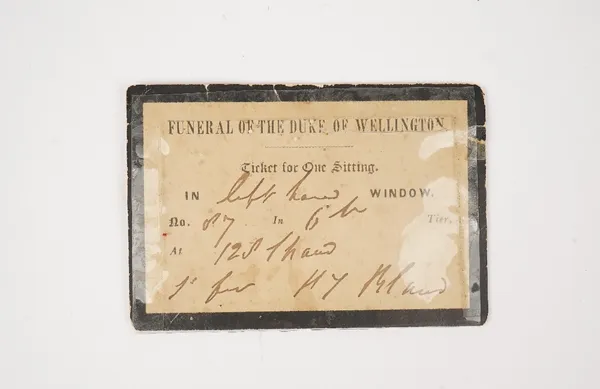 FUNERAL OF THE DUKE OF WELLINGTON
Ticket for One Sitting.
IN left hand WINDOW.
No. 87 In 6th Tier.
At 128 Strand
H Bland